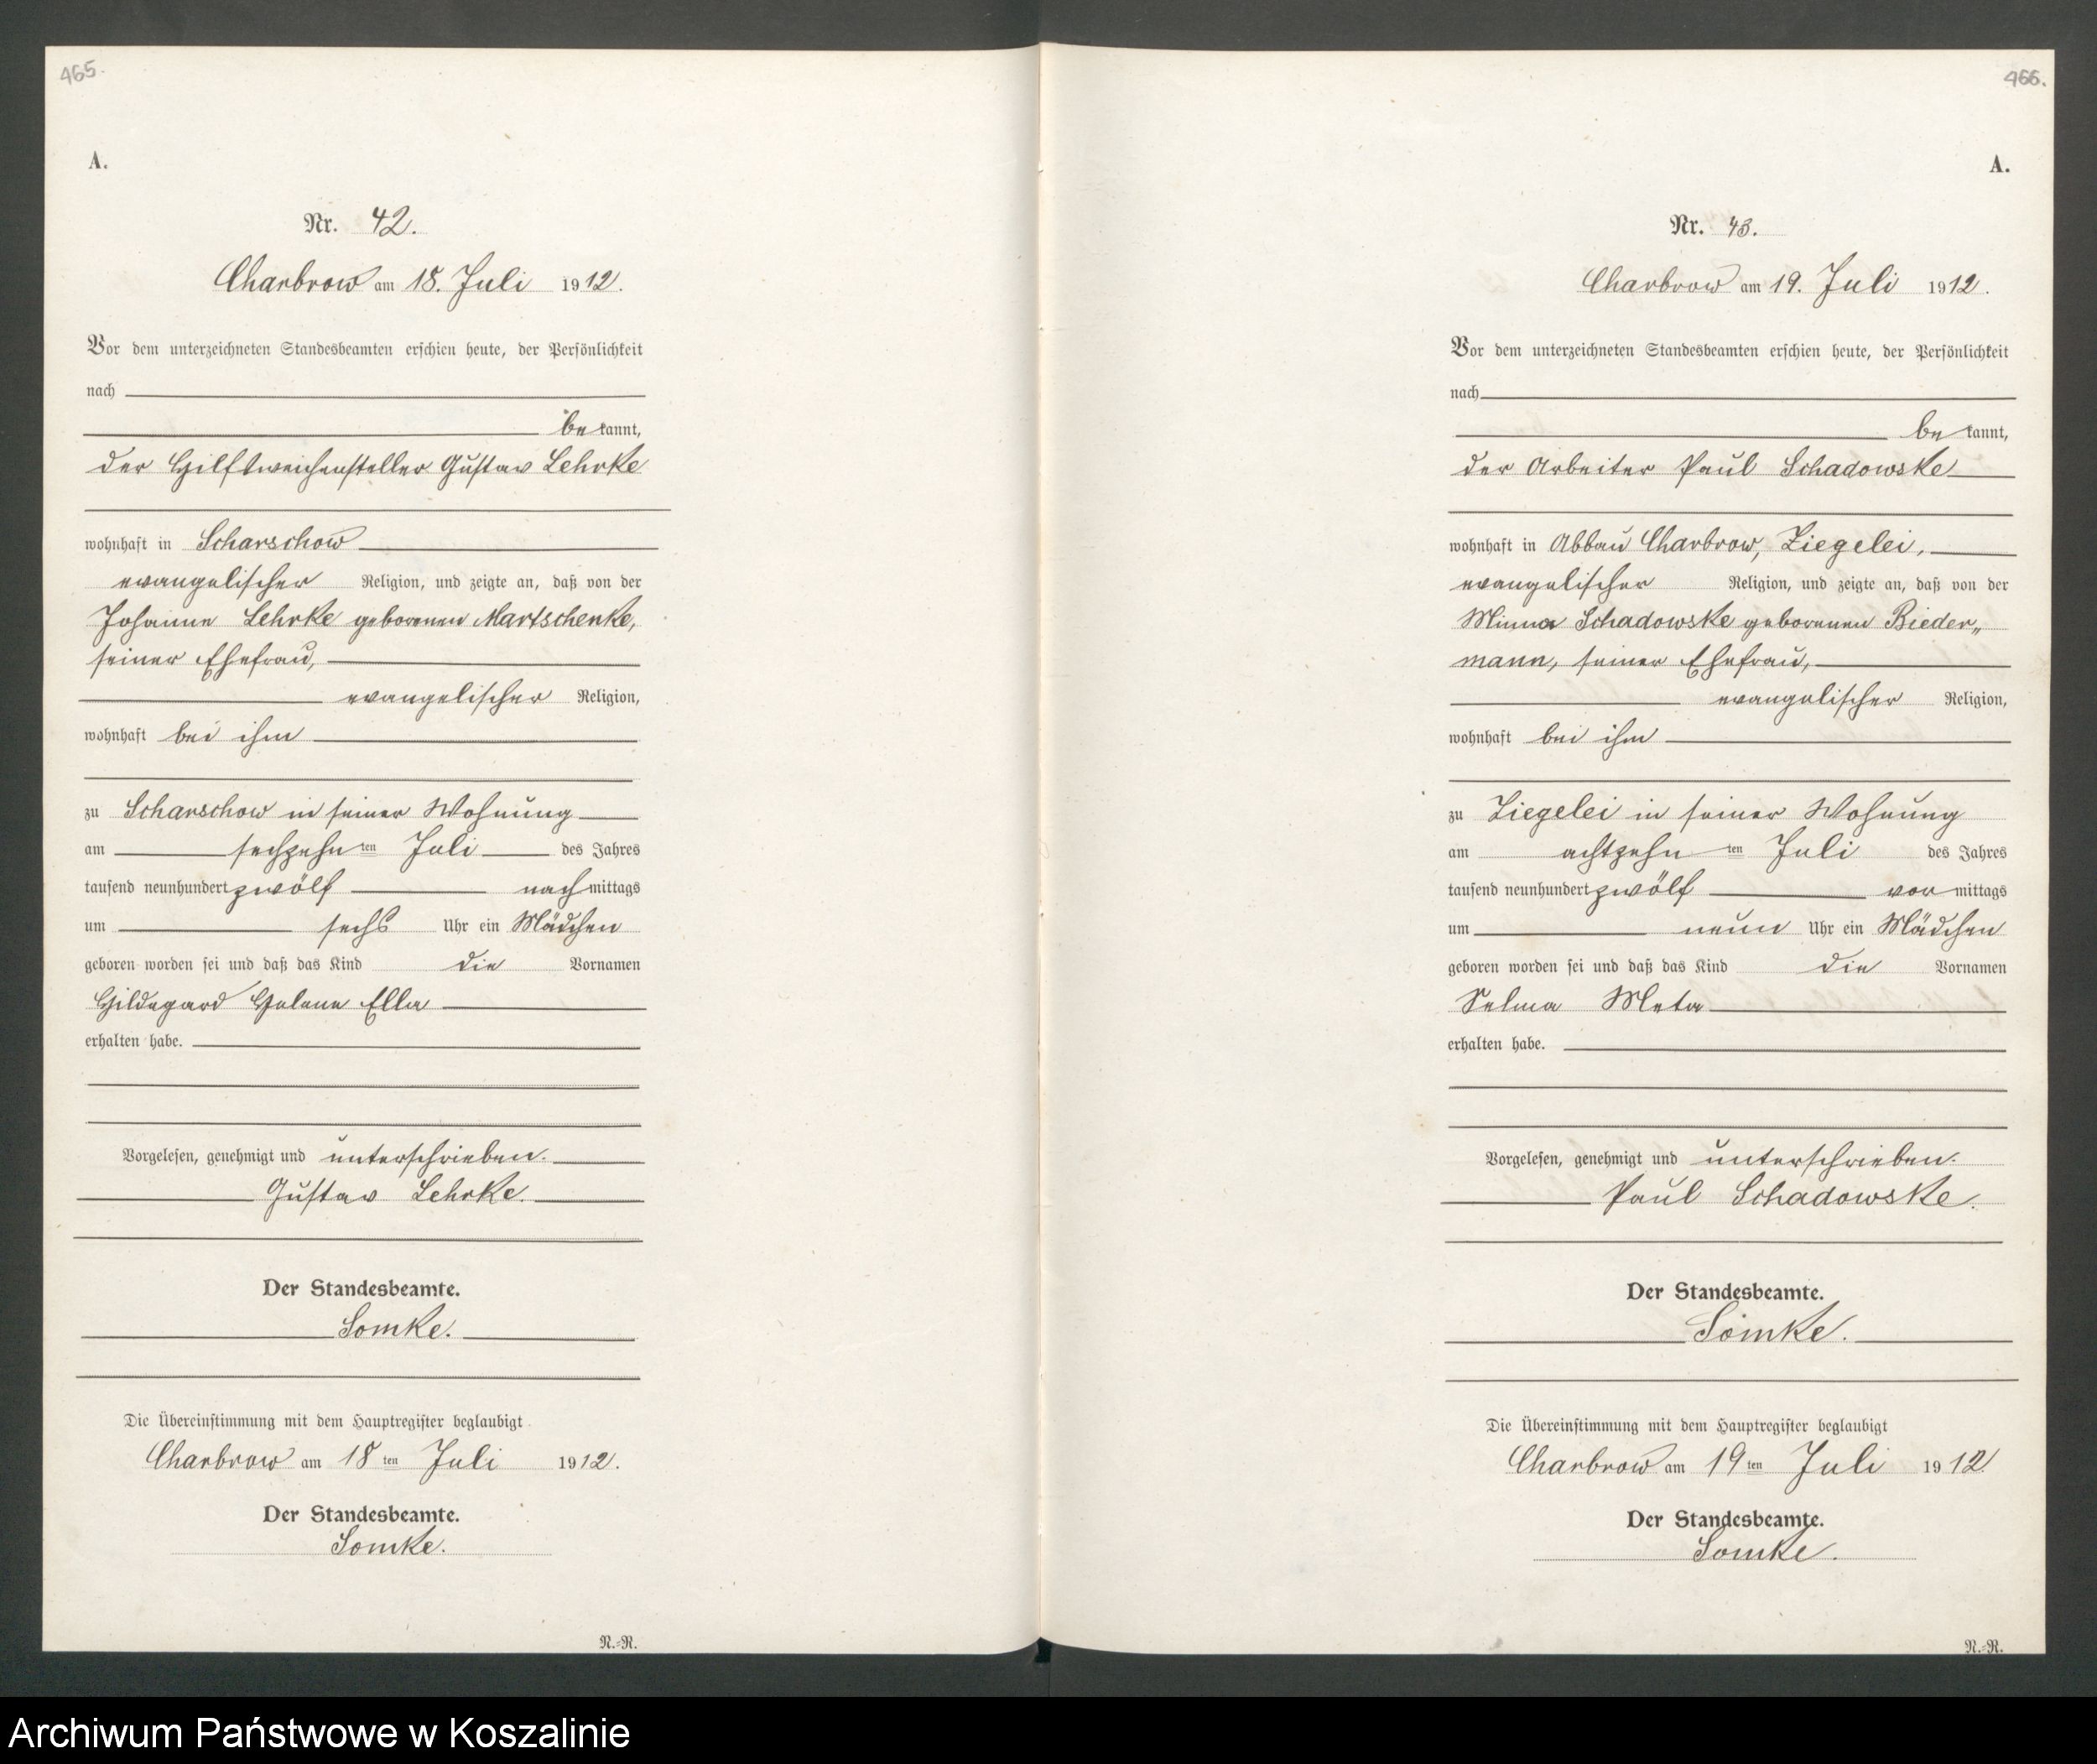 465.
A.
Nr. 42.
Charbrow am 18. Juli 1912.
Vor dem unterzeichneten Standesbeamten erschien heute, der Persönlichkeit
nach
bekannt,
der Hilfsweichensteller Gustav Lehrke
wohnhaft in Scharschow
evangelischer Religion, und zeigte an, daß von der
Johanne Lehrke geborenen Martschenke,
seiner Ehefrau,
evangelischer Religion,
wohnhaft bei ihm
zu Scharschow in seiner Wohnung
am sechzehnten Juli des Jahres
tausend neunhundert zwölf nachmittags
um sechs Uhr ein Mädchen
geboren worden sei und daß das Kind die Vornamen
Hildegard Helene Ella
erhalten habe.
Vorgelesen, genehmigt und unterschrieben.
Gustav Lehrke.
Der Standesbeamte.
Somke.
Die Übereinstimmung mit dem Hauptregister beglaubigt
Charbrow am 18ten Juli 1912.
Der Standesbeamte.
Somke.
N.-R.
466.
A.
Nr. 43.
Charbrow am 19. Juli 1912.
Vor dem unterzeichneten Standesbeamten erschien heute, der Persönlichkeit
nach
bekannt,
der Arbeiter Paul Schadowske
wohnhaft in Abbau Charbrow, Ziegelei,
evangelischer Religion, und zeigte an, daß von der
Minna Schadowske geborenen Bieder„
mann, seiner Ehefrau,
evangelischer Religion,
wohnhaft bei ihm
zu Ziegelei in seiner Wohnung
am achtzehnten Juli des Jahres
tausend neunhundert zwölf vormittags
um neun Uhr ein Mädchen
geboren worden sei und daß das Kind die Vornamen
Selma Meta
erhalten habe.
Vorgelesen, genehmigt und unterschrieben.
Paul Schadowske.
Der Standesbeamte.
Somke.
Die Übereinstimmung mit dem Hauptregister beglaubigt
Charbrow am 19ten Juli 1912
Der Standesbeamte.
Somke.
N.-R.
Archiwum Państwowe w Koszalinie